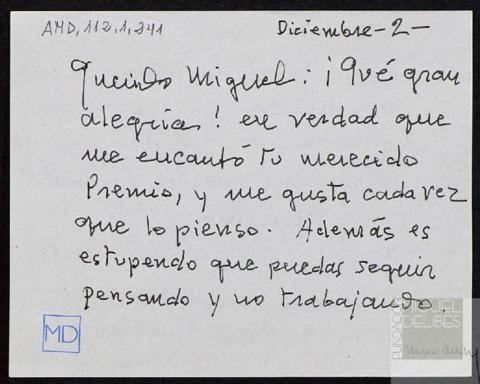 AMD, 112, 1, 241
Diciembre - 2 -
Querido Miguel: ¡Qué gran
alegría! en verdad que
me encantó tu merecido
Premio, y me gusta cada vez
que lo pienso. Además es
estupendo que puedas seguir
pensando y no trabajando.
MD
FUNDACIÓN
MIGUEL
DELIBES